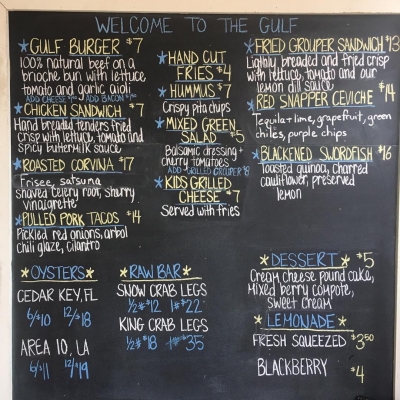 WELCOME TO THE GULF
GULF BURGER $7
100% natural beef on a
brioche bun with lettuce
tomato and garlic aioli
ADD CHEESE $1 ADD BACON $2
CHICKEN SANDWICH $7
Hand breaded tenders fried
crisp with lettuce, tomato and
spicy buttermilk sauce
ROASTED CORVINA $17
Frisee, satsuma
shaved celery root, sherry
vinaigrette
PULLED PORK TACOS $14
Pickled red onions, arbol
chili glaze, cilantro
HAND CUT
FRIES $4
HUMMUS $7
Crispy pita chips
MIXED GREEN
SALAD $5
Balsamic dressing +
cherry tomatoes
ADD GRILLED GROUPER $8
KIDS GRILLED
CHEESE $7
Served with fries
FRIED GROUPER SANDWICH $13
Lightly breaded and fried crisp
with lettuce, tomato and our
lemon dill sauce
RED SNAPPER CEVICHE $14
Tequila + lime, grapefruit, green
chiles, purple chips
BLACKENED SWORDFISH $16
Toasted quinoa, charred
cauliflower, preserved
lemon
OYSTERS
CEDAR KEY, FL
6/$10 12/$18
AREA 10, LA
6/$11 12/$19
RAW BAR
SNOW CRAB LEGS
1/2# $12 1# $22
KING CRAB LEGS
1/2# $18 1# $35
DESSERT $5
Cream cheese pound cake,
Mixed berry compote,
sweet cream
LEMONADE
FRESH SQUEEZED $3.50
BLACKBERRY $4